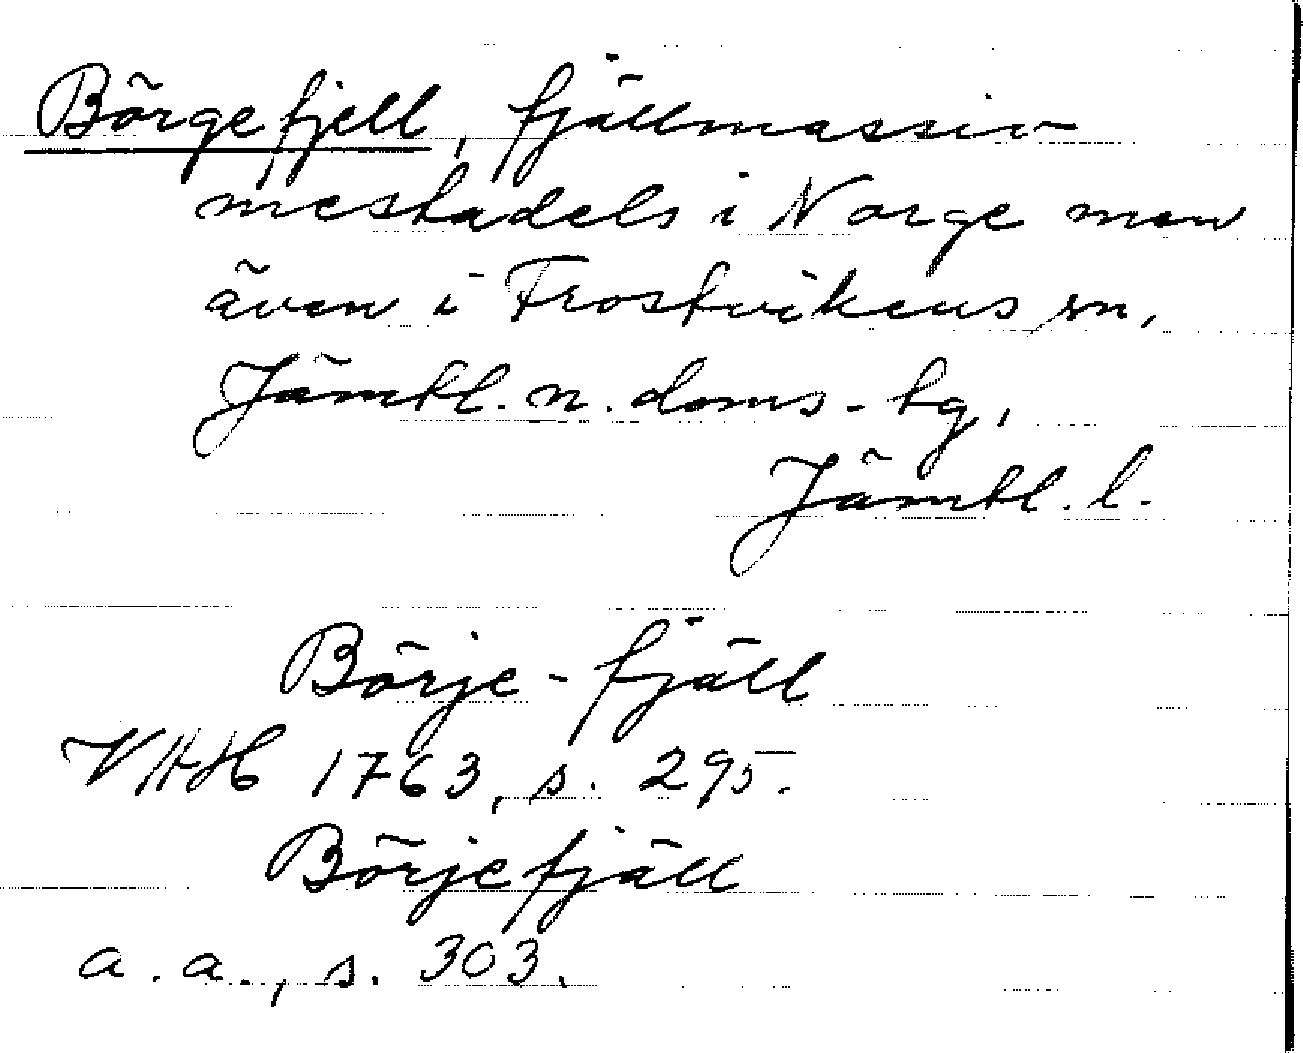 Börgefjell, fjällmassiv
mestadels i Norge men
även i Frostvikens sn,
Jämtl. n. doms-tg,
Jämtl. l.
Börje-fjäll
VHAH 1763, s. 295.
Börjefjäll
a. a., s. 303.